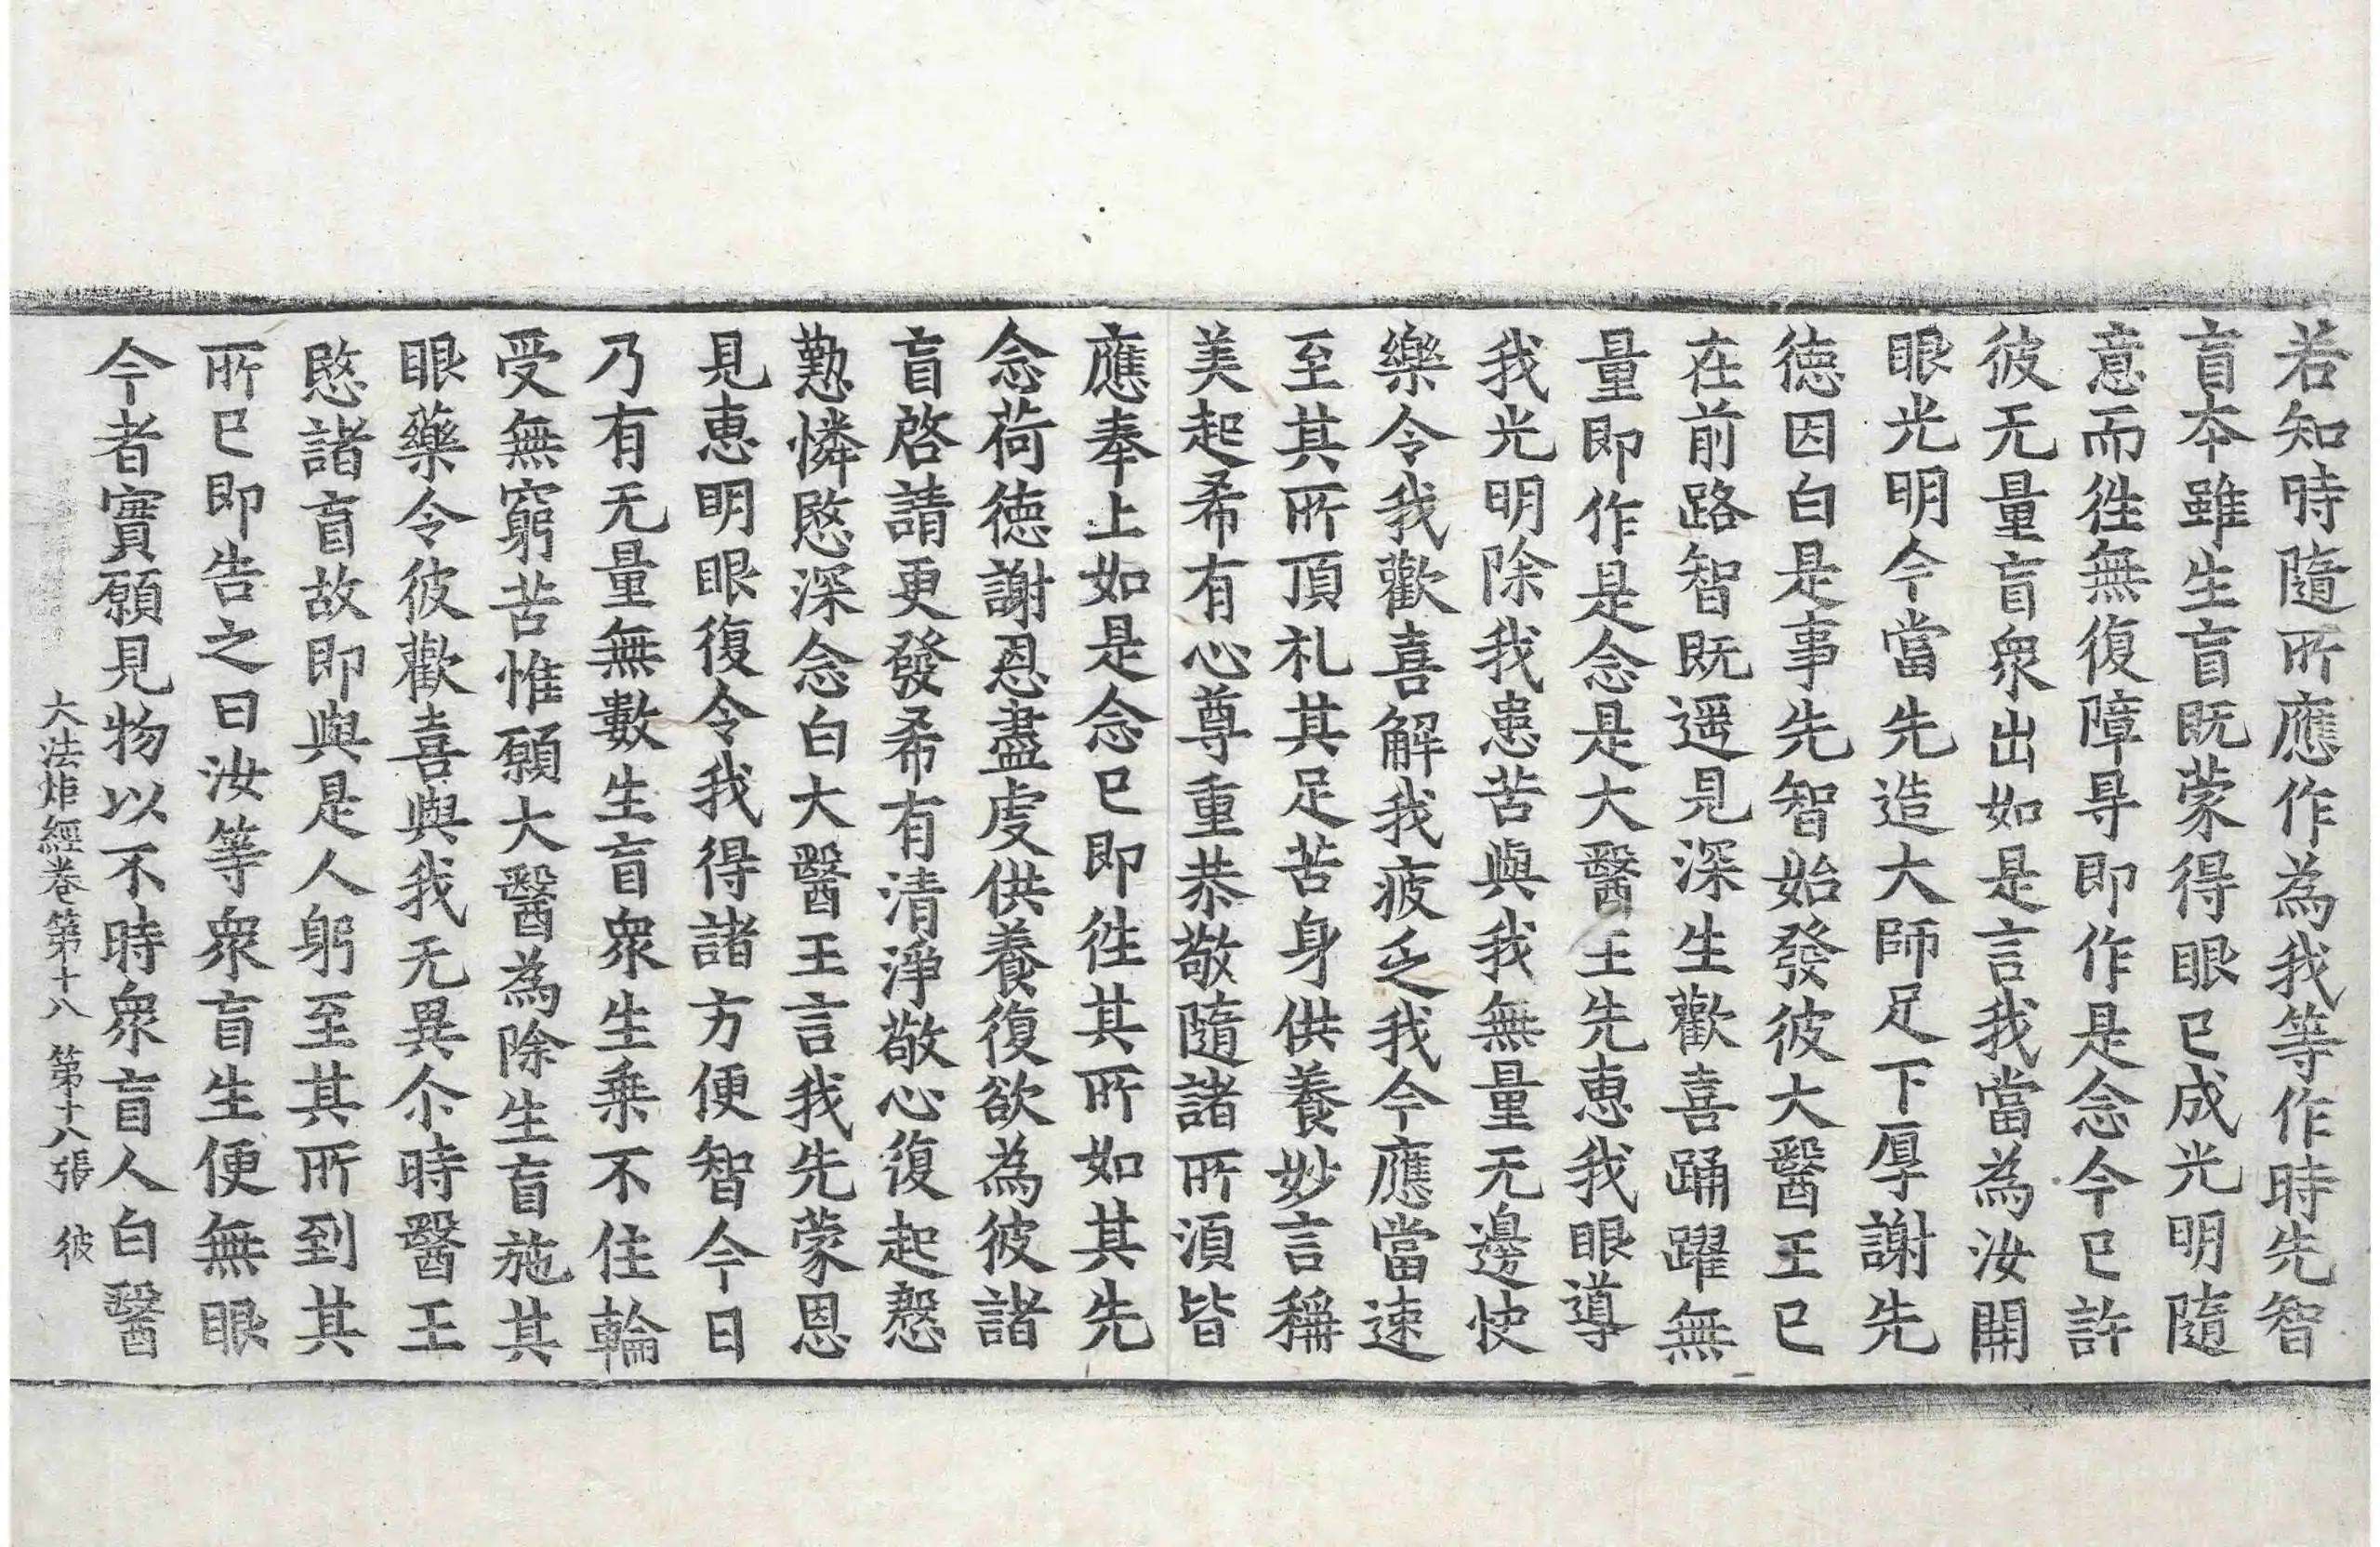 若知時隨所應作為我等作時先智
盲本雖生盲既蒙得眼已成光明隨
意而徃無復障㝵即作是念今已許
彼无量盲衆出如是言我當為汝開
眼光明今當先造大師足下厚謝先
徳因白是事先智始發彼大醫王已
在前路智既遥見深生歡喜踊躍無
量即作是念是大醫王先惠我眼導
我光明除我患苦與我無量无邊快
樂令我歡喜解我疲乏我今應當速
至其所頂礼其足苦身供養妙言稱
美起希有心尊重恭敬隨諸所湏皆
應奉上如是念已即徃其所如其先
念荷徳謝恩盡虔供養復欲為彼諸
盲啓請更發希有清淨敬心復起慇
懃憐愍深念白大醫王言我先蒙恩
見惠明眼復令我得諸方便智今日
乃有无量無數生盲衆生乗不住輪
受無窮苦惟願大醫為除生盲施其
眼藥令彼歡喜與我无異尒時醫王
愍諸盲故即與是人躬至其所到其
所已即告之曰汝等衆盲生便無眼
今者實願見物以不時衆盲人白醫
大法炬經卷第十八 第十八張 彼